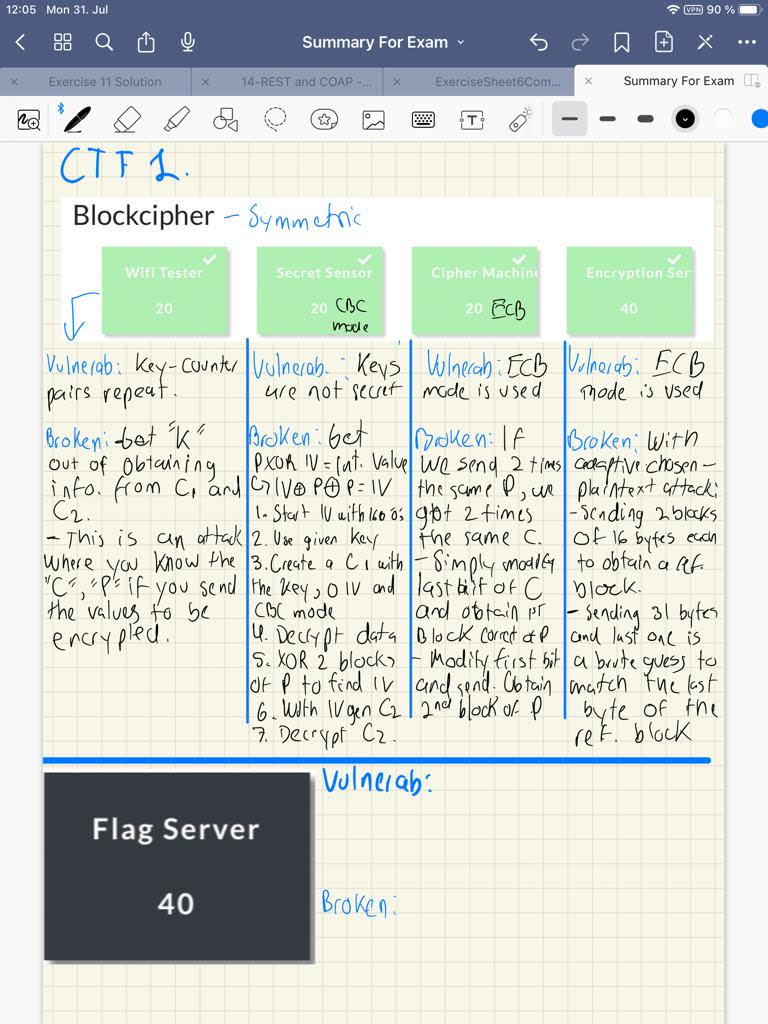 12:05 Mon 31. Jul
VPN 90 %
Summary For Exam
Exercise 11 Solution
14-REST and COAP -...
ExerciseSheet6Com...
Summary For Exam
CTF 1.
Blockcipher - Symmetric
Wifi Tester
20
Secret Sensor
20 CBC
mode
Cipher Machine
20 ECB
Encryption Ser
40
Vulnerab: Key-Counter
pairs repeat.
Broken: Get "K"
out of obtaining
info. from C1 and
C2.
- This is an attack
where you know the
"C", "P" if you send
the values to be
encrypted.
Vulnerab.: Keys
are not secret
Broken: Get
P XOR IV = Int. Value
IV⊕P⊕P=IV
1. Start IV with 16 0's
2. Use given key
3. Create a C1 with
the key, 0 IV and
CBC mode
4. Decrypt data
5. XOR 2 blocks
of P to find IV
6. With IV gen C2
7. Decrypt C2.
Vulnerab: ECB
mode is used
Broken: If
we send 2 times
the same P, we
got 2 times
the same C.
- Simply modify
last bit of C
and obtain 1st
Block correct of P
- Modify first bit
and send. Obtain
2nd block of P
Vulnerab: ECB
mode is used
Broken: With
adaptive chosen-
plaintext attack:
- Sending 2 blocks
of 16 bytes each
to obtain a ref.
block.
- Sending 31 bytes
and last one is
a brute guess to
match the last
byte of the
ref. block
Flag Server
40
Vulnerab:
Broken: